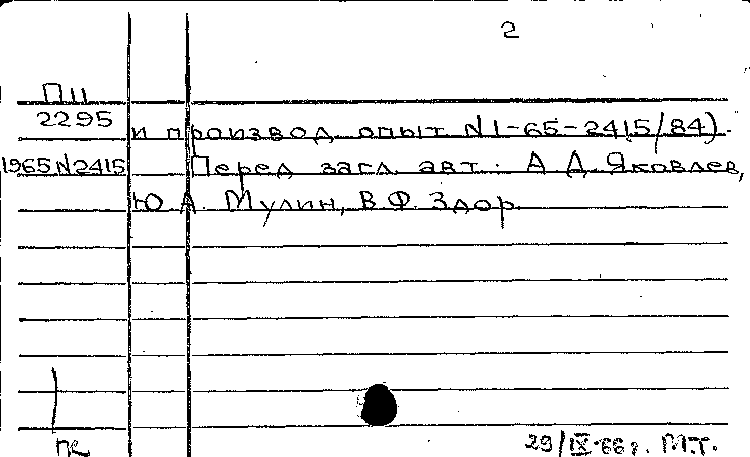 2
П11
2295
и производ. опыт. N1-65-2415/84).
1965 N2415 Перед загл. авт.: А.Д. Яковлев,
Ю.А. Мулин, В.Ф. Здор.
пк
29/IX-66 г. М.Т.